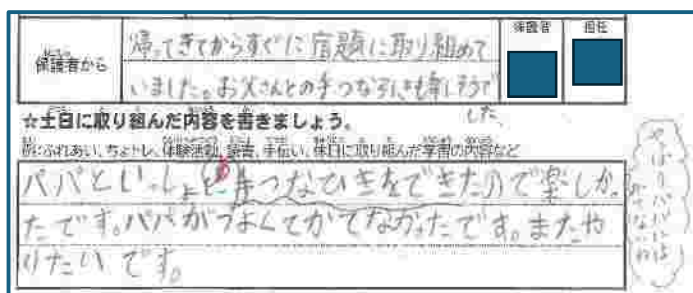 保護者から
帰ってきてからすぐに宿題に取り組めて
いました。お父さんとの手つな引きも楽しそうで
した。
保護者
担任
☆土日に取り組んだ内容を書きましょう。
例:ふれあい、ちょトレ、体験活動、読書、手伝い、休日に取り組んだ学習の内容など
パパといっしょに手つなひきをできたので楽しか
たです。パパがつよくてかてなかったです。またや
りたいです。
やっぱり
パパには
かてないね